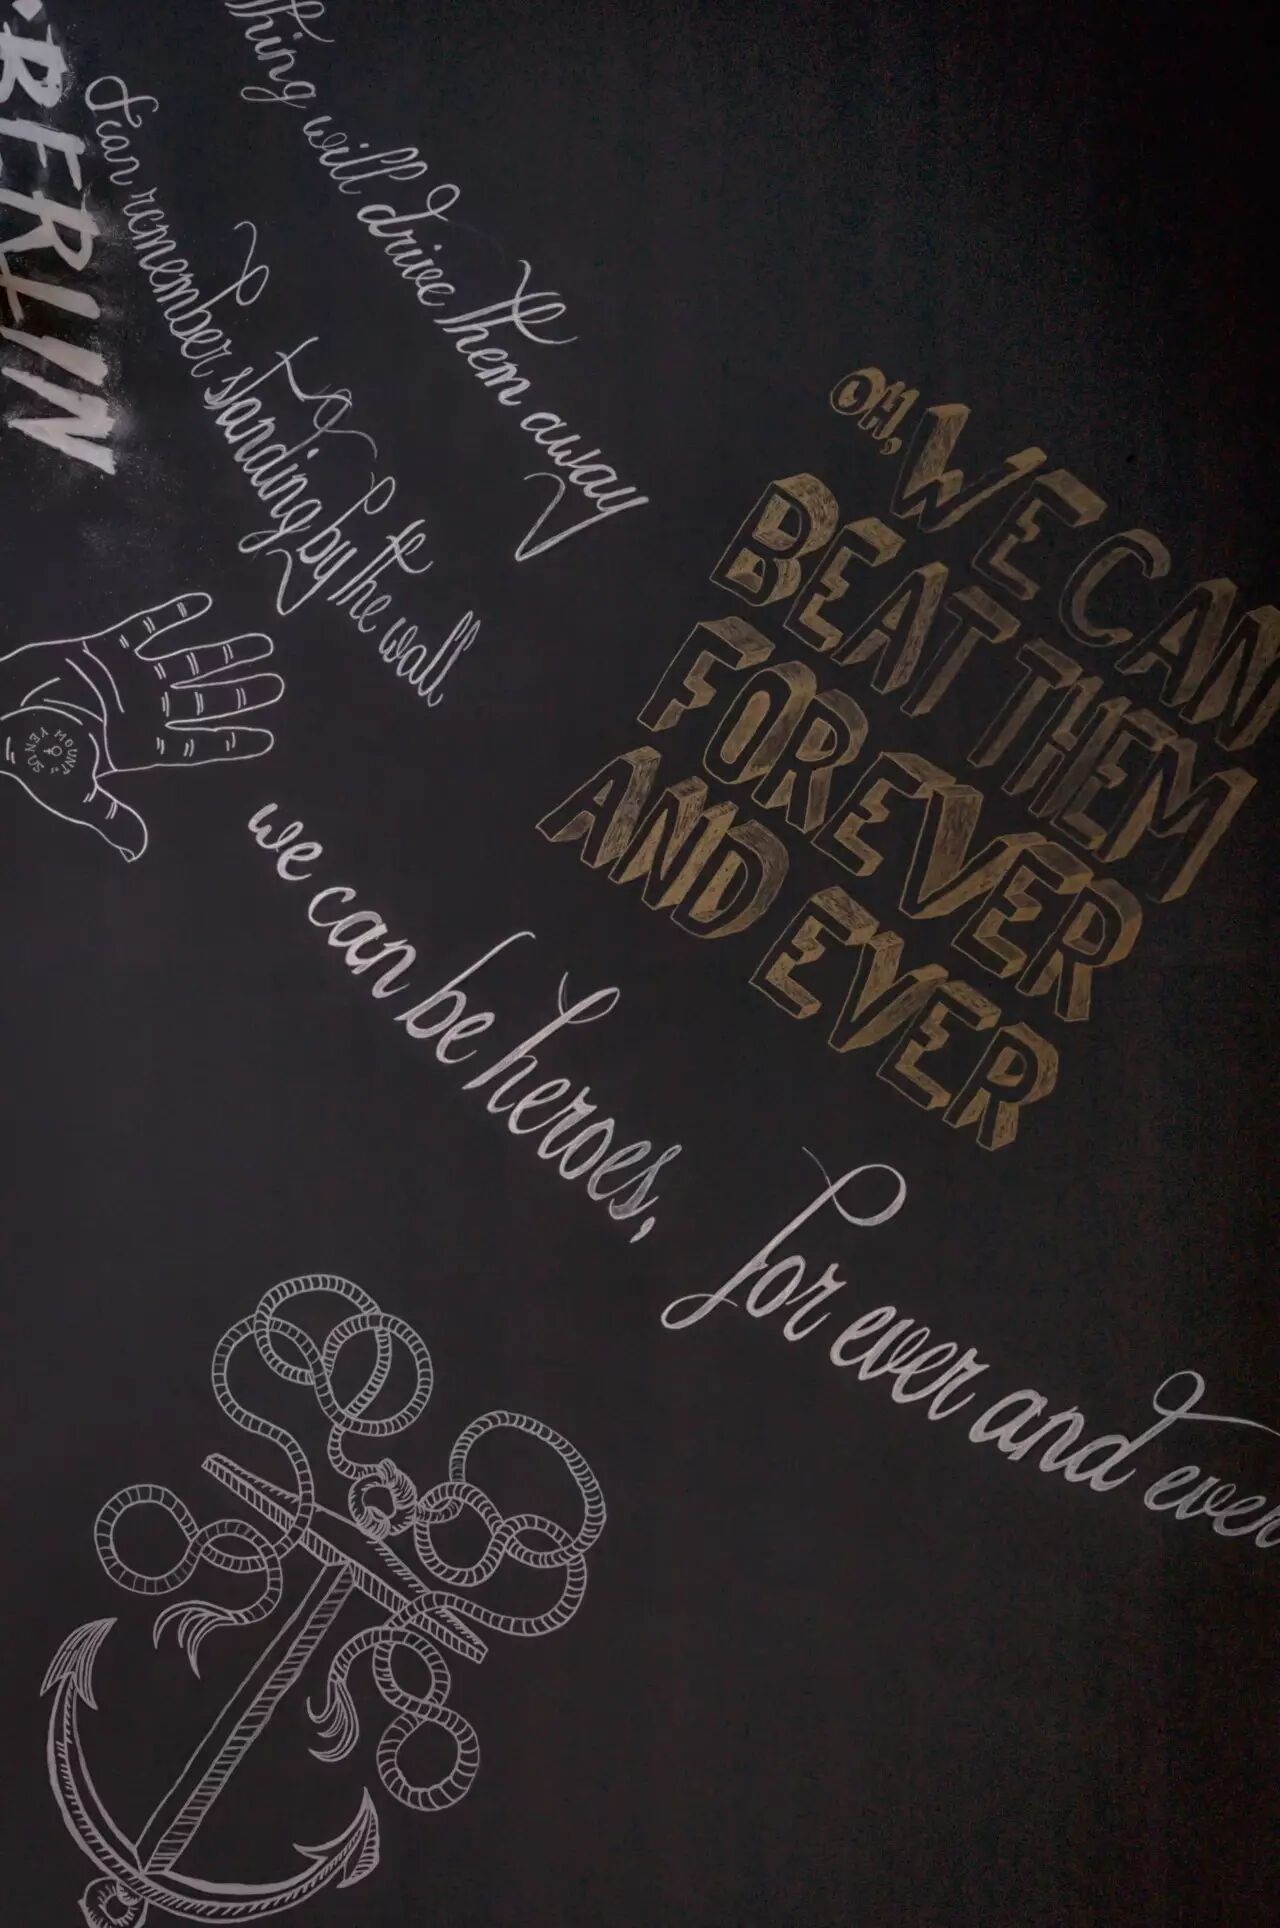 BERLIN
thing will drive them away
I can remember standing by the wall
OH, WE CAN
BEAT THEM
FOREVER
AND EVER
MOUNT of VENUS
we can be heroes,
for ever and ever